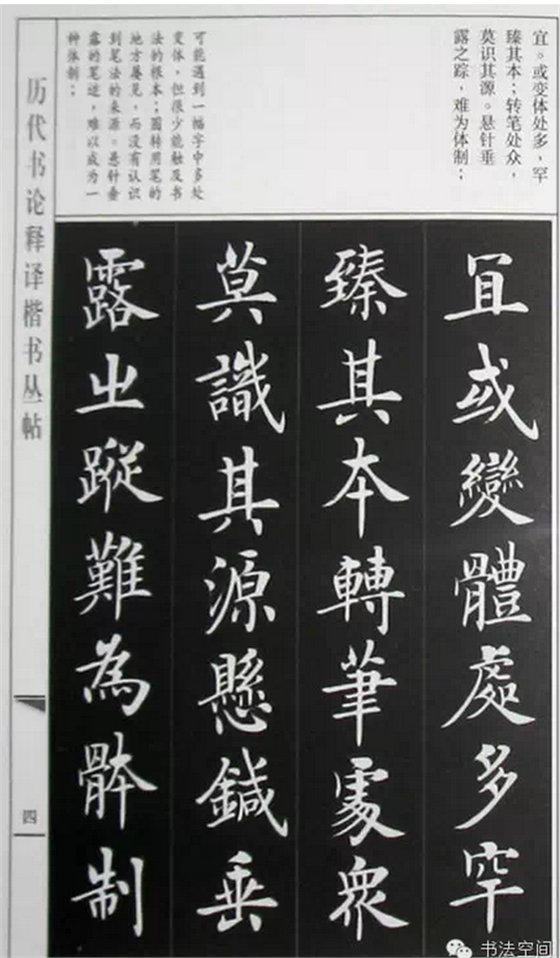 宜。或变体处多，罕
臻其本；转笔处众，
莫识其源。悬针垂
露之踪，难为体制；
可能遇到一幅字中多处
变体，但很少能触及书
法的根本；圆转用笔的
地方屡见，而没有认识
到笔法的来源。悬针垂
露的笔迹，难以成为一
种体制；
冝或變體處多罕
臻其本轉筆處衆
莫識其源懸鍼垂
露之蹤難為骵制
历代书论释译楷书丛帖
四
书法空间